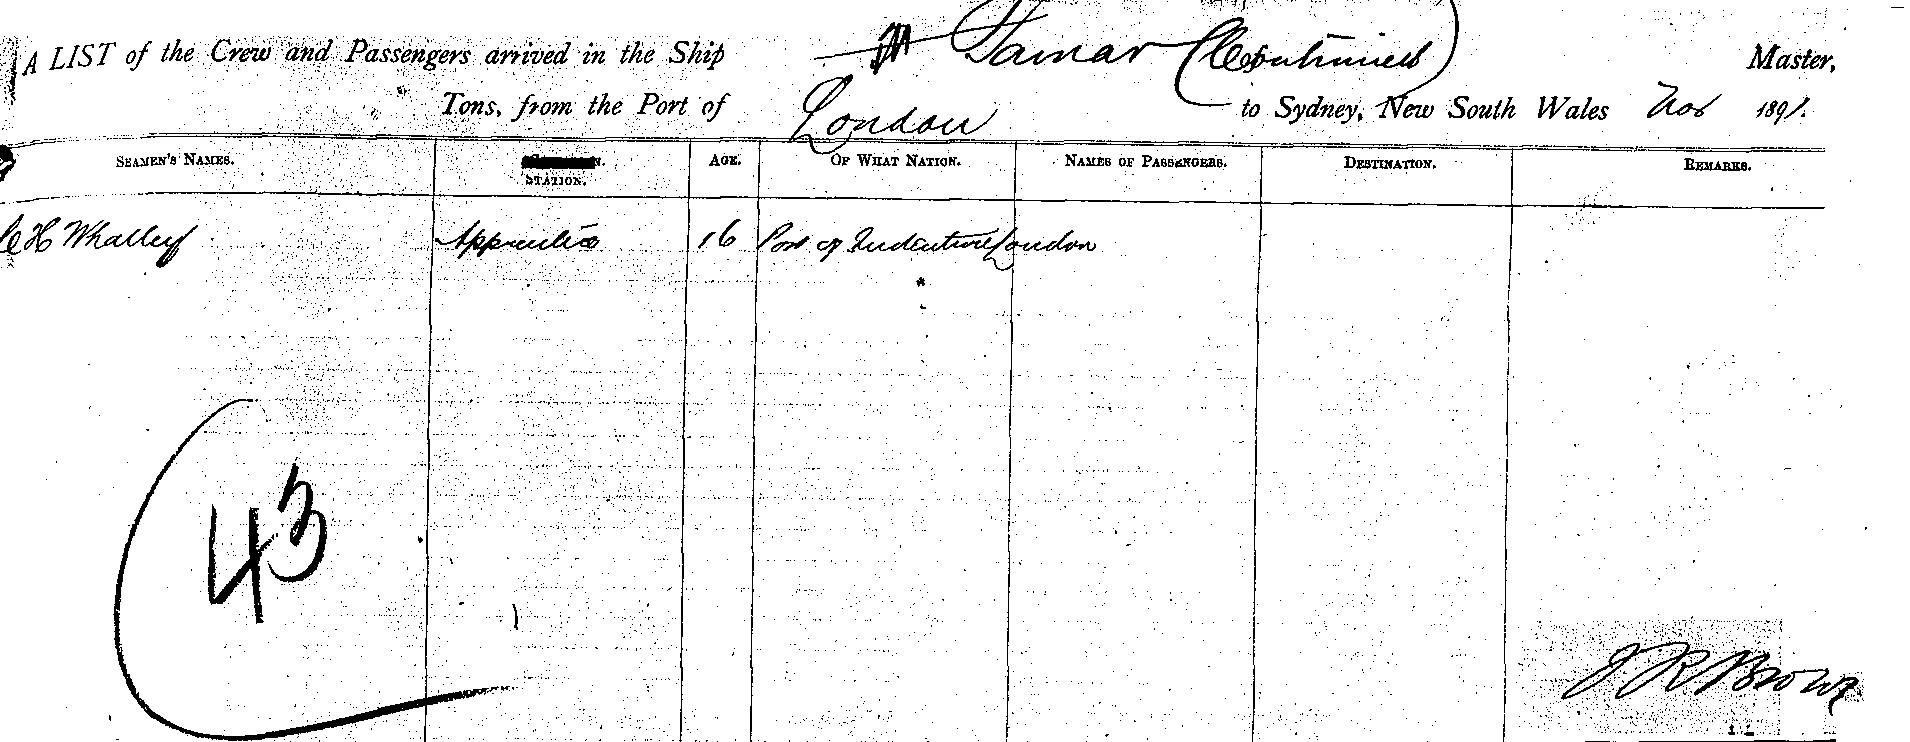 A LIST of the Crew and Passengers arrived in the Ship Tamar (Continued) Master,
Tons, from the Port of London to Sydney, New South Wales Nov 1891.
SEAMEN'S NAMES. STATION. AGE. OF WHAT NATION. NAMES OF PASSENGERS. DESTINATION. REMARKS.
C H Whalley Apprentice 16 Port of Indenture London
43
J R Brown